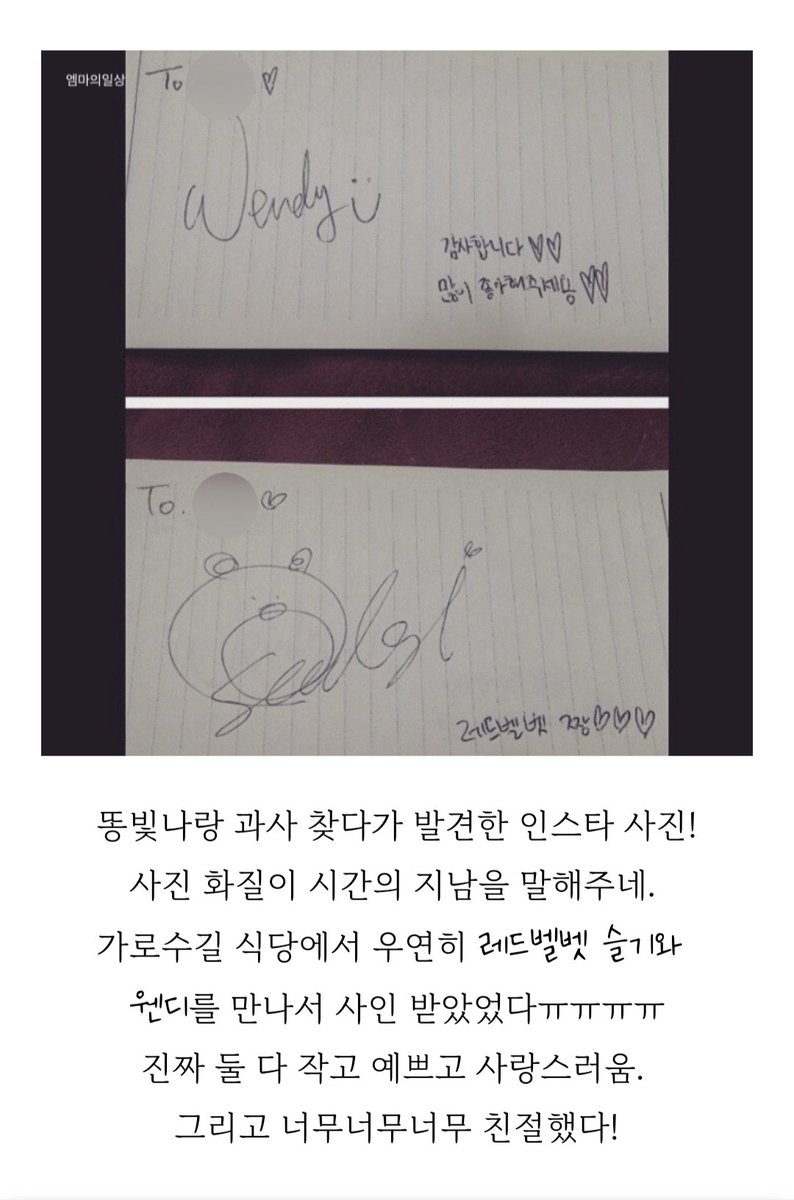 엠마의일상
To ♡
Wendy
감사합니다♡♡
많이 좋아해주세용♡♡
To. ♡
Seulgi
레드벨벳 짱♡♡♡
똥빛나랑 과사 찾다가 발견한 인스타 사진!
사진 화질이 시간의 지남을 말해주네.
가로수길 식당에서 우연히 레드벨벳 슬기와
웬디를 만나서 사인 받았었다ㅠㅠㅠㅠ
진짜 둘 다 작고 예쁘고 사랑스러움.
그리고 너무너무너무 친절했다!